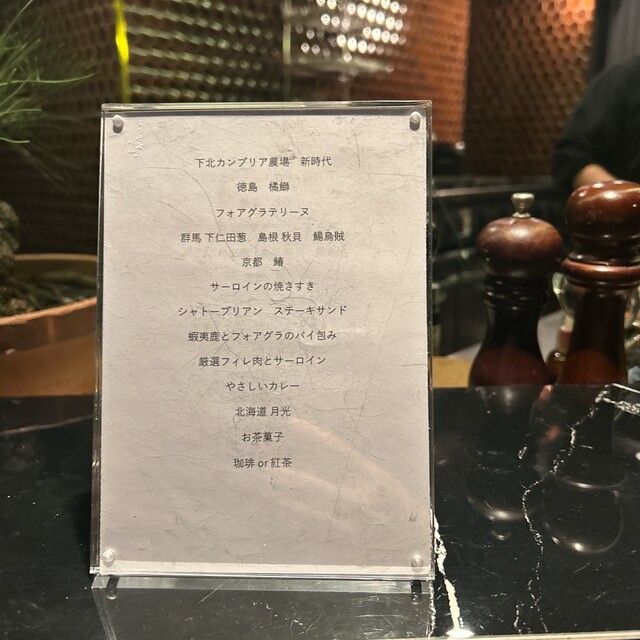 下北カンブリア農場　新時代
徳島　橘鰤
フォアグラテリーヌ
群馬 下仁田葱　島根 秋貝　鯣烏賊
京都　鰆
サーロインの焼さすき
シャトーブリアン　ステーキサンド
蝦夷鹿とフォアグラのパイ包み
厳選フィレ肉とサーロイン
やさしいカレー
北海道 月光
お茶菓子
珈琲 or 紅茶